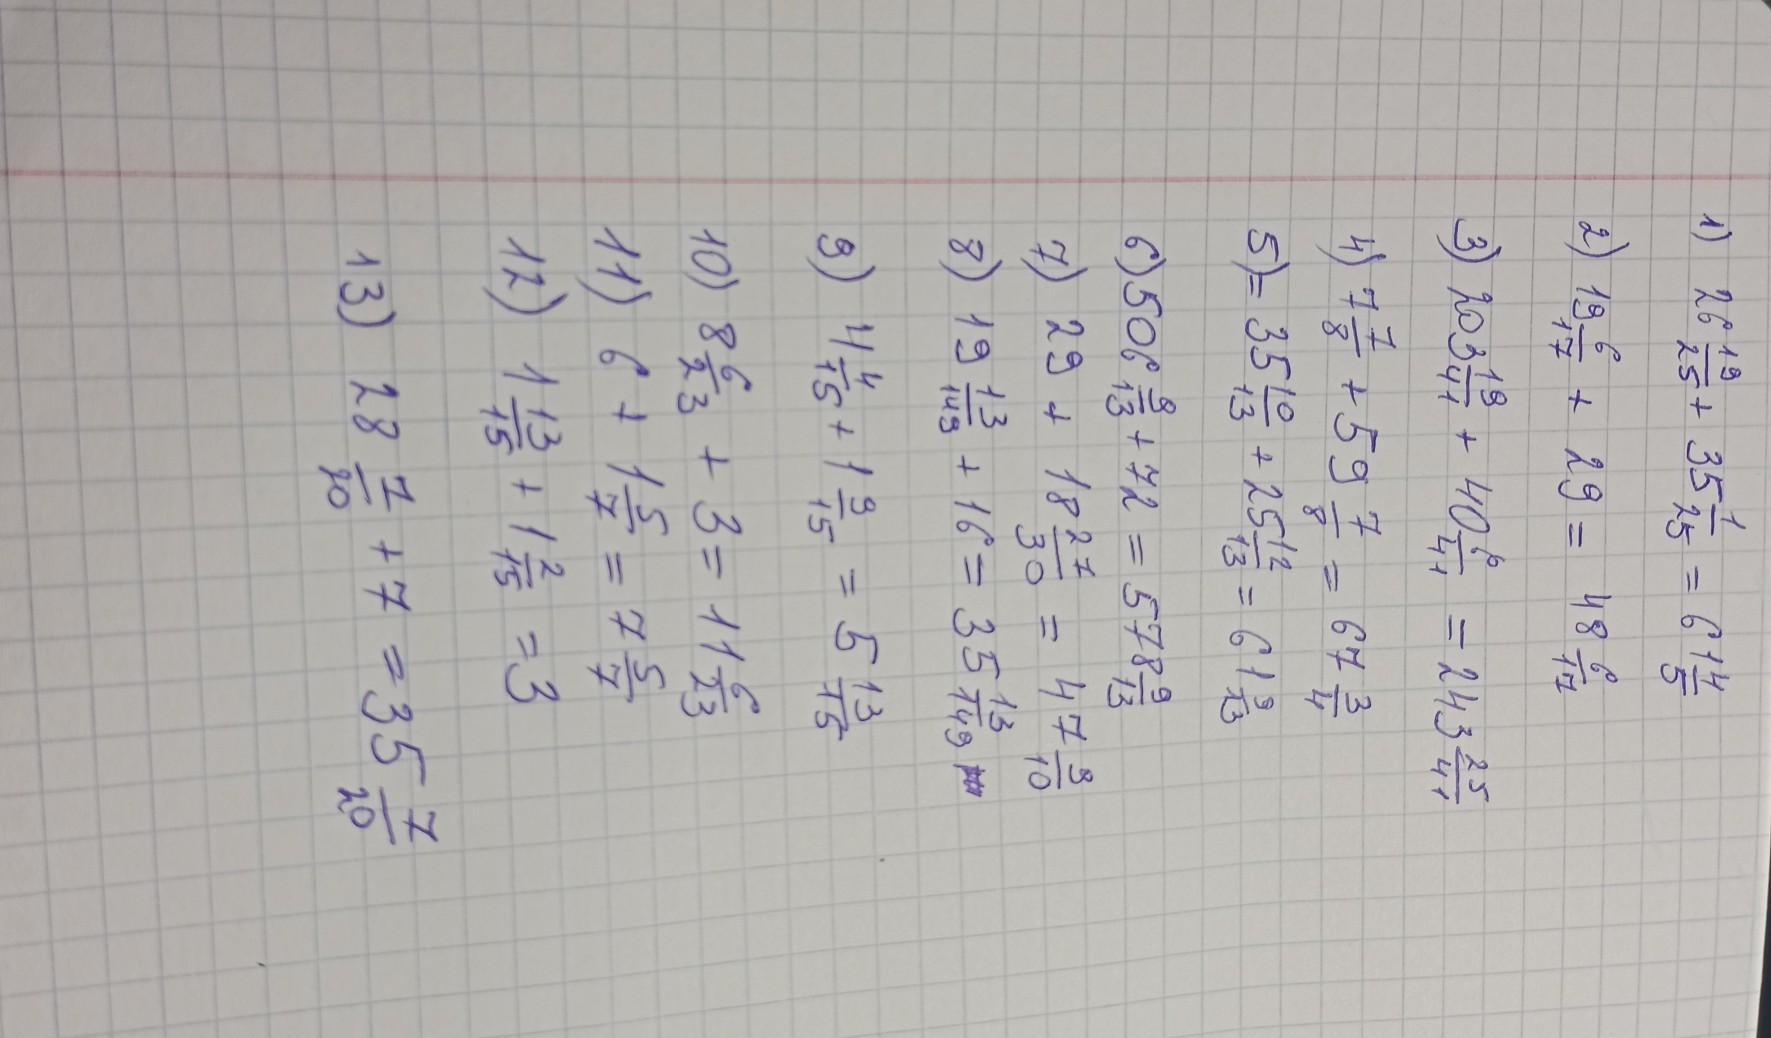 1) 26 19/25 + 35 1/25 = 61 4/5
2) 19 6/17 + 29 = 48 6/17
3) 203 19/41 + 40 6/41 = 243 25/41
4) 7 7/8 + 59 7/8 = 67 3/4
5) = 35 10/13 + 25 12/13 = 61 9/13
6) 506 9/13 + 72 = 578 9/13
7) 29 + 18 27/30 = 47 9/10
8) 19 13/149 + 16 = 35 13/149
9) 4 4/15 + 1 9/15 = 5 13/15
10) 8 6/23 + 3 = 11 6/23
11) 6 + 1 5/7 = 7 5/7
12) 1 13/15 + 1 2/15 = 3
13) 28 7/20 + 7 = 35 7/20